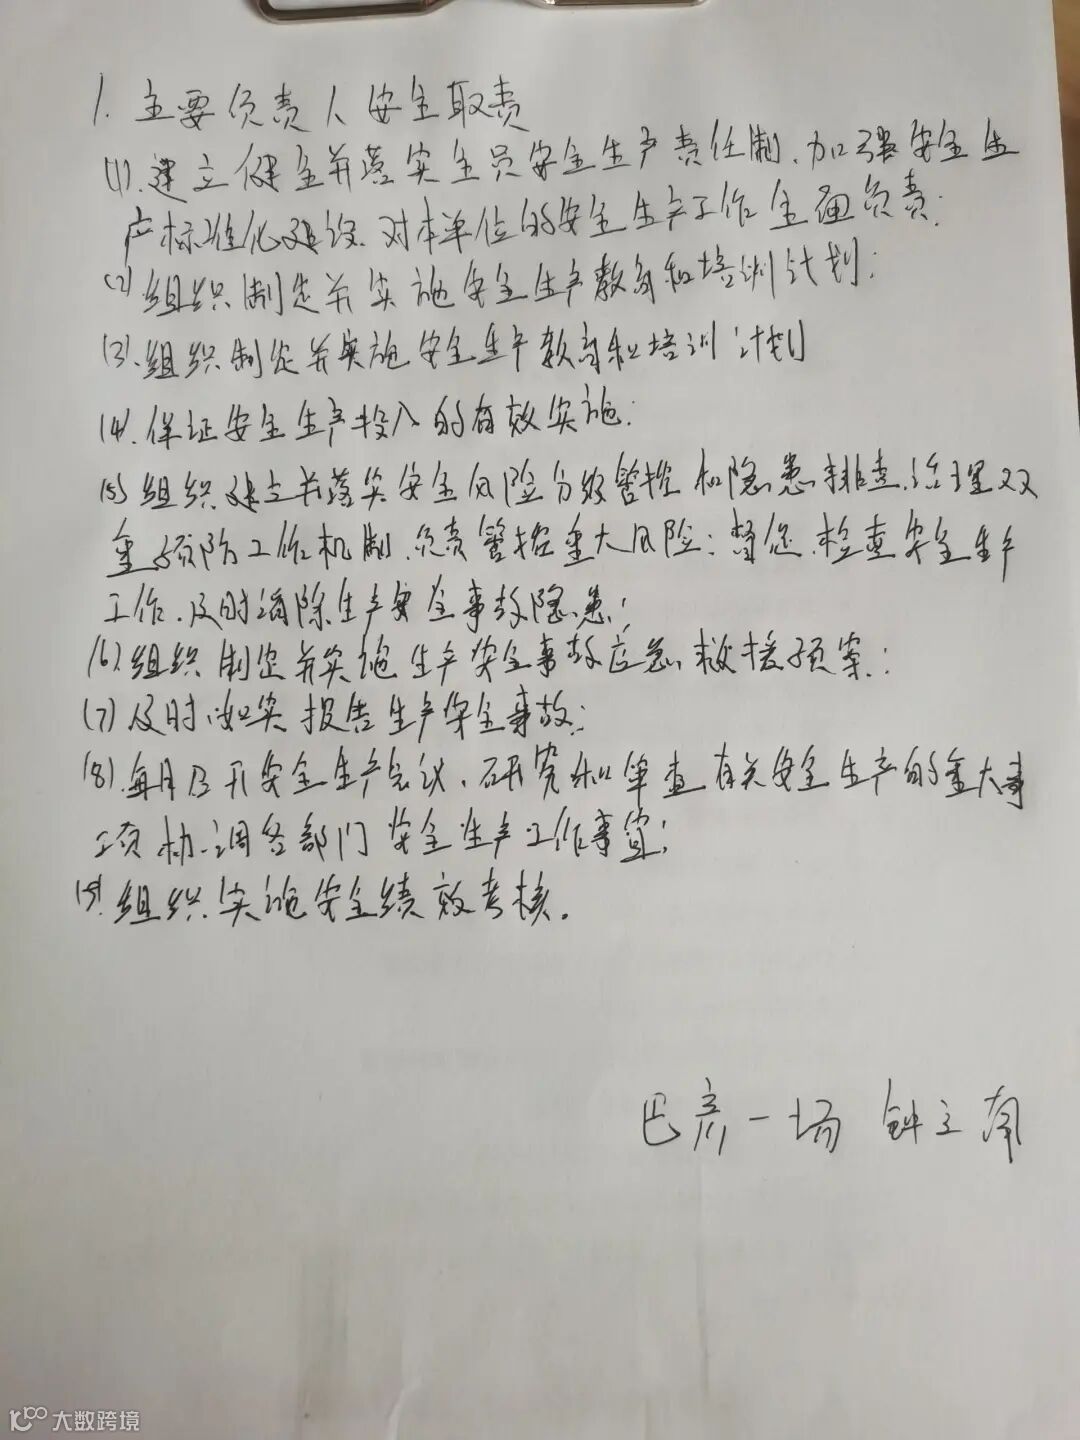 1. 主要负责人安全职责
(1).建立健全并落实全员安全生产责任制、加强安全生
产标准化建设、对本单位的安全生产工作全面负责;
(2)组织制定并实施安全生产教育和培训计划;
(3).组织制定并实施安全生产教育和培训计划
(4).保证安全生产投入的有效实施;
(5)组织建立并落实安全风险分级管控和隐患排查治理双
重预防工作机制、负责管控重大风险;督促、检查安全生产
工作、及时消除生产安全事故隐患;
(6).组织制定并实施生产安全事故应急救援预案;
(7)及时、如实报告生产安全事故;
(8).每月召开安全生产会议、研究和审查有关安全生产的重大事
项协调各部门安全生产工作事宜;
(9).组织实施安全绩效考核。
巴彦一场 钟立南
大数跨境